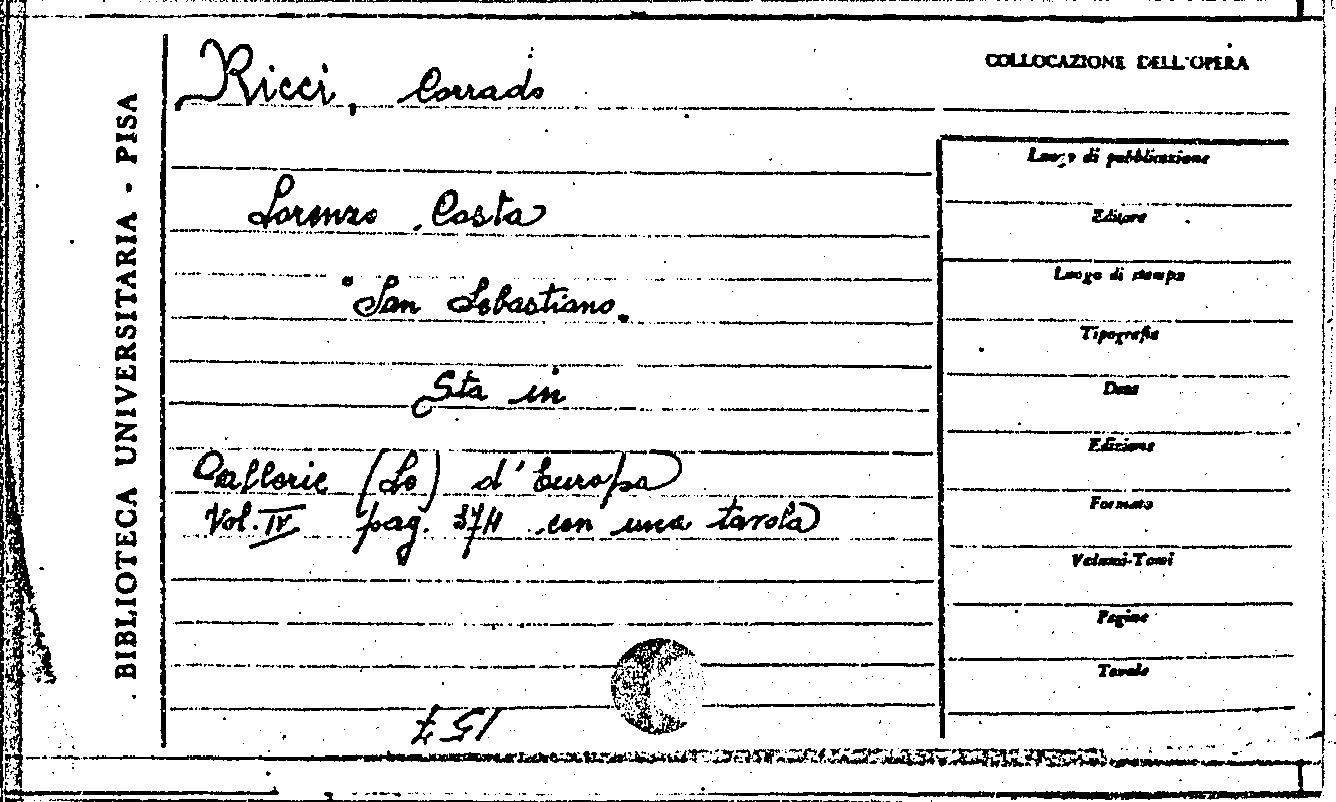 Ricci, Corrado
COLLOCAZIONE DELL'OPERA
Lorenzo Costa
"San Sebastiano"
Sta in
Gallerie (Le) d'Europa
Vol. IV pag. 374 con una tavola
157
BIBLIOTECA UNIVERSITARIA - PISA
Luogo di pubblicazione
Editore
Luogo di stampa
Tipografia
Data
Edizione
Formato
Volumi-Tomi
Pagine
Tavole